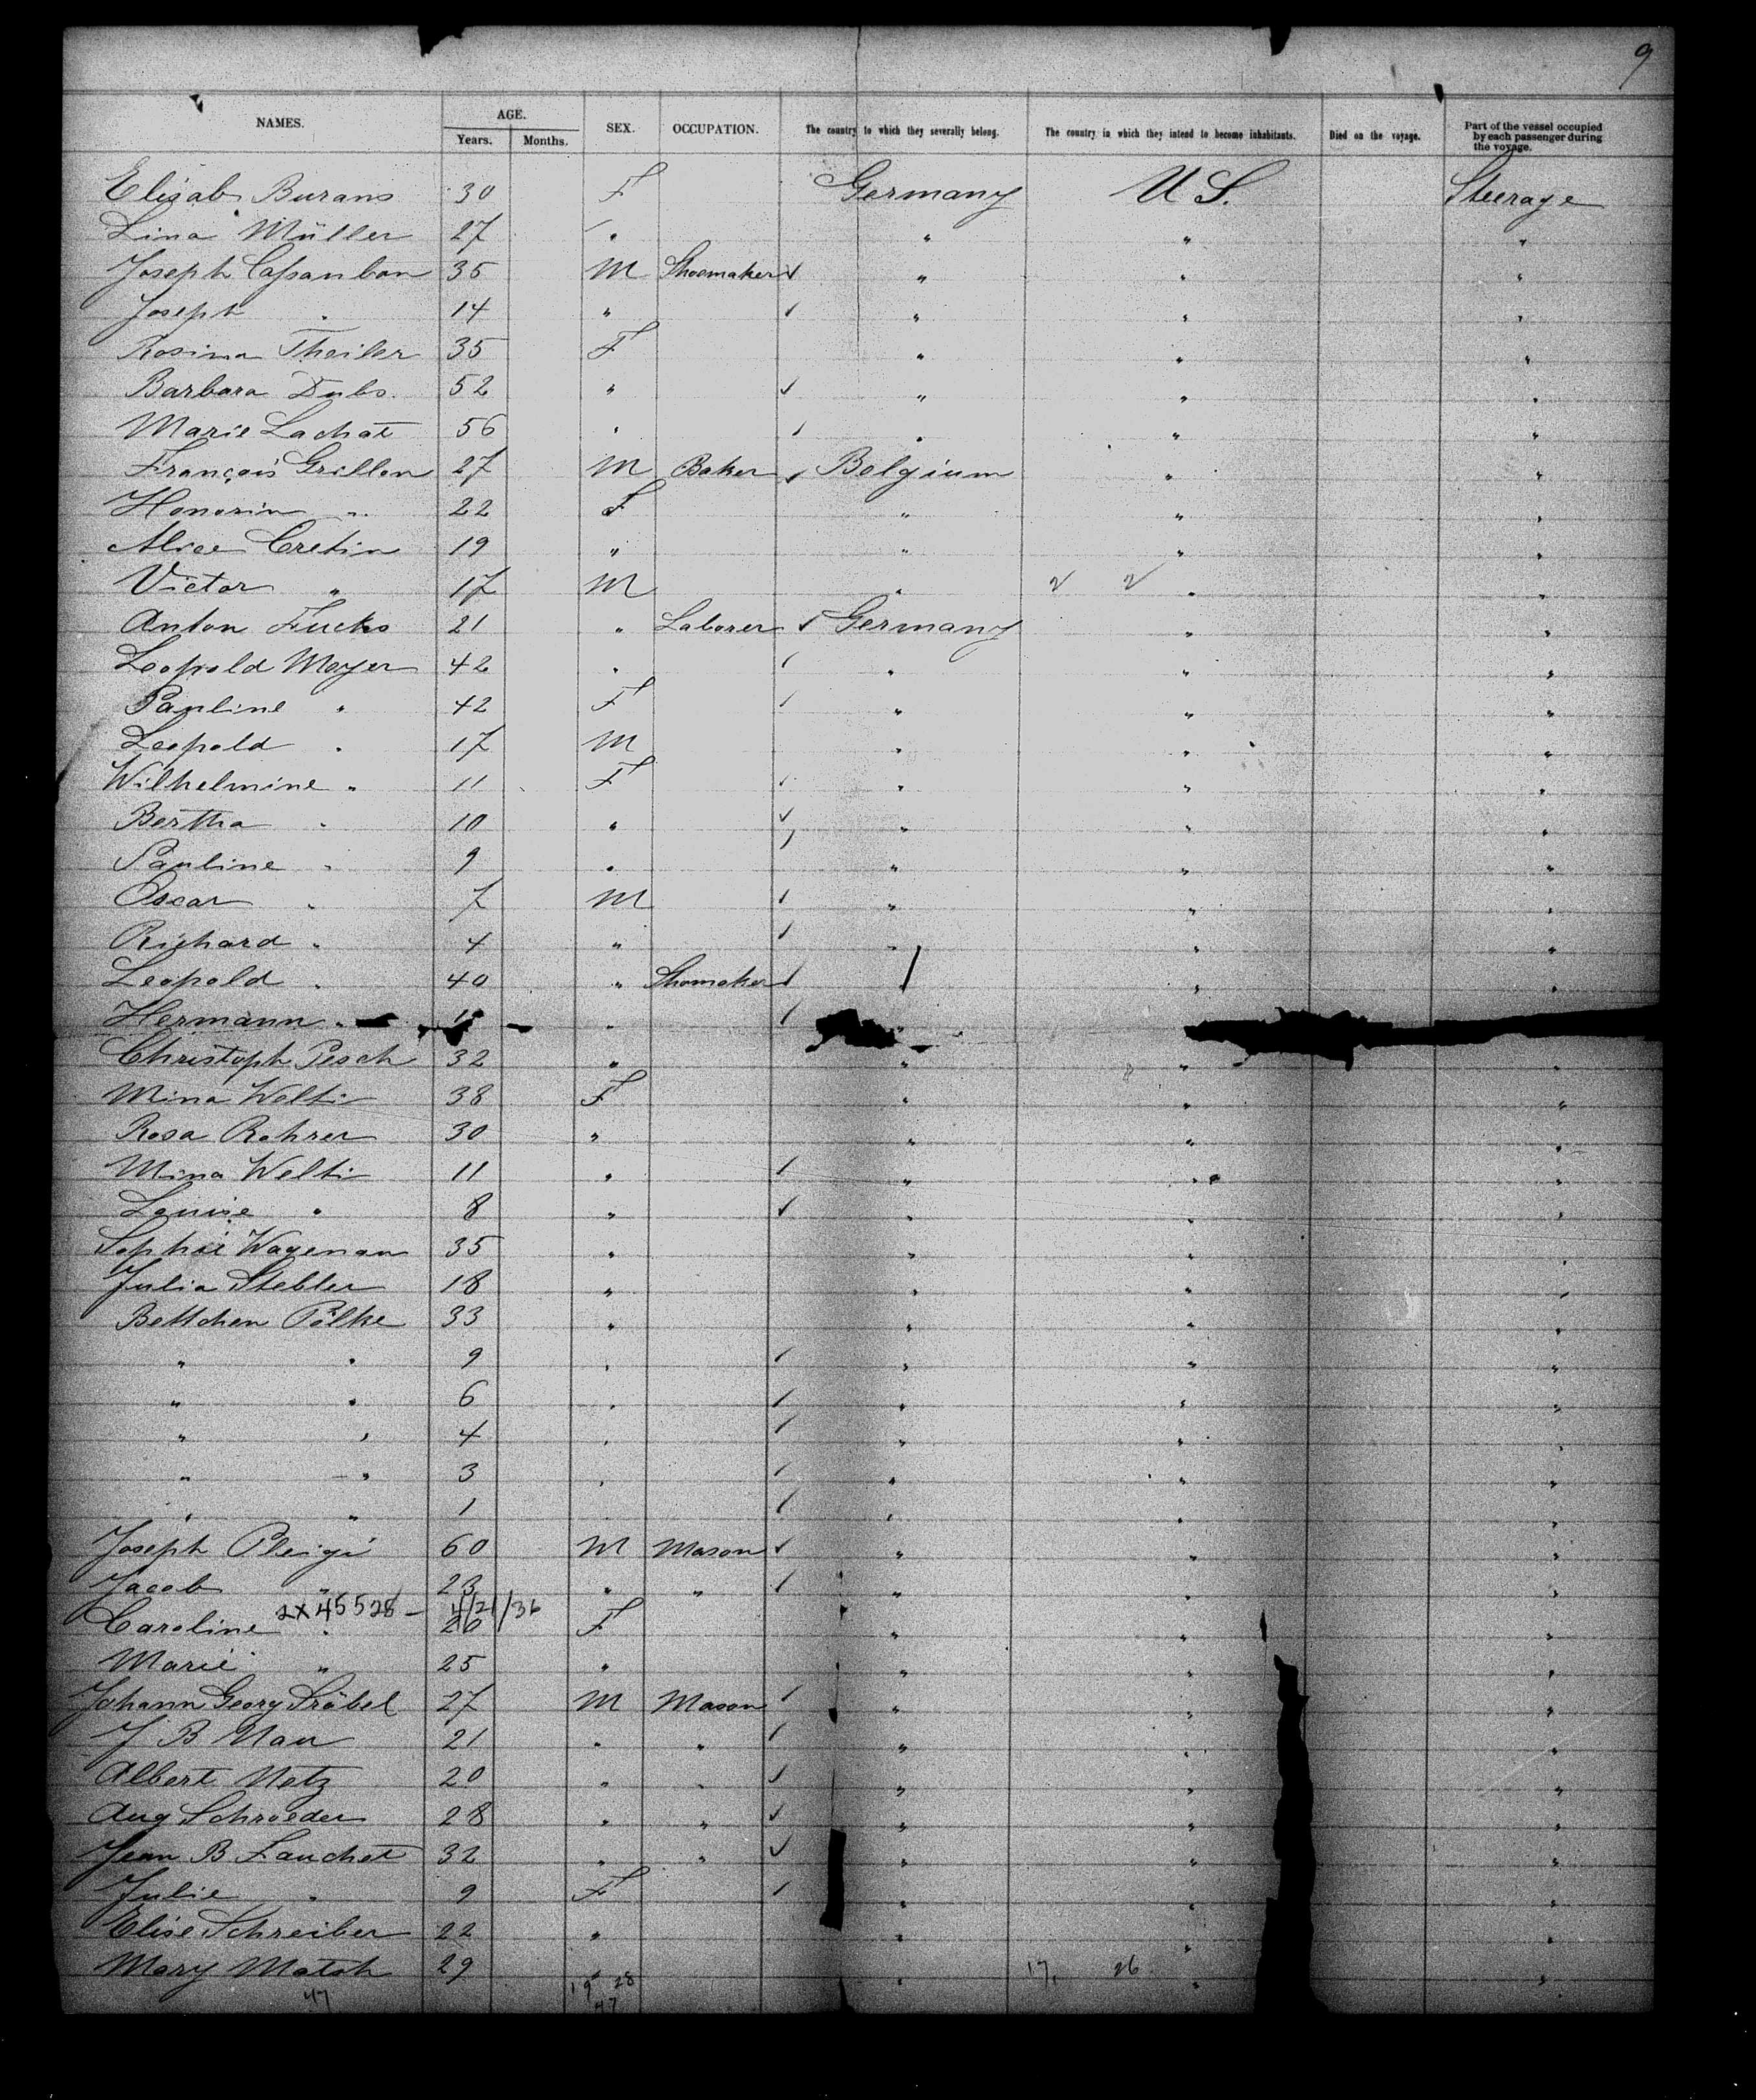 9
NAMES. AGE. Years. Months. SEX. OCCUPATION. The country to which they severally belong. The country in which they intend to become inhabitants. Died on the voyage. Part of the vessel occupied by each passenger during the voyage.
Elisab Burans 30 F Germany U S. Steerage
Lina Müller 27 " " " "
Joseph 35 M Shoemaker " " "
Joseph " 14 " " " "
Rosina Theiler 35 F " " "
Barbara Dubs. 52 " " " "
Marie Lachat 56 " " " "
François Grillon 27 M Baker Belgium " "
Honorin " 22 F " " "
Alice Cretin 19 " " " "
Victor " 17 M " " "
Anton Fucks 21 " Laborer Germany " "
Leopold Moyer 42 " " " "
Pauline " 42 F " " "
Leopold " 17 M " " "
Wilhelmine " 11 F " " "
Bertha " 10 " " " "
Pauline " 9 " " " "
Oscar " 7 M " " "
Richard " 4 " " " "
Leopold " 40 " Shomaker " "
Hermann " " " "
Christoph Pesch 32 " " " "
Mina Welti 38 F " " "
Rosa Rohrer 30 " " " "
Mina Welti 11 " " " "
Louise " 8 " " " "
Sophie Wagenan 35 " " " "
Julia Stebler 18 " " " "
Bettchen Pölke 33 " " " "
" " 9 " " " "
" " 6 " " " "
" " 4 " " " "
" " 3 " " " "
" " 1 " " " "
Joseph Pleigi 60 M Mason " " "
Jacob " 23 " " " " "
2X45528 - 4/21/36
Caroline " 20 F " " "
Marie " 25 " " " "
Johann Georg Ströbel 27 M Mason " " "
J B Nau 21 " " " " "
Albert Netz 20 " " " " "
Aug Schroeder 28 " " " " "
Jean B Lauchet 32 " " " " "
Julie " 9 F " " "
Elise Schreiber 22 " " " "
Mary Matsh 29 " " " "
47 19 28 17, 26
47